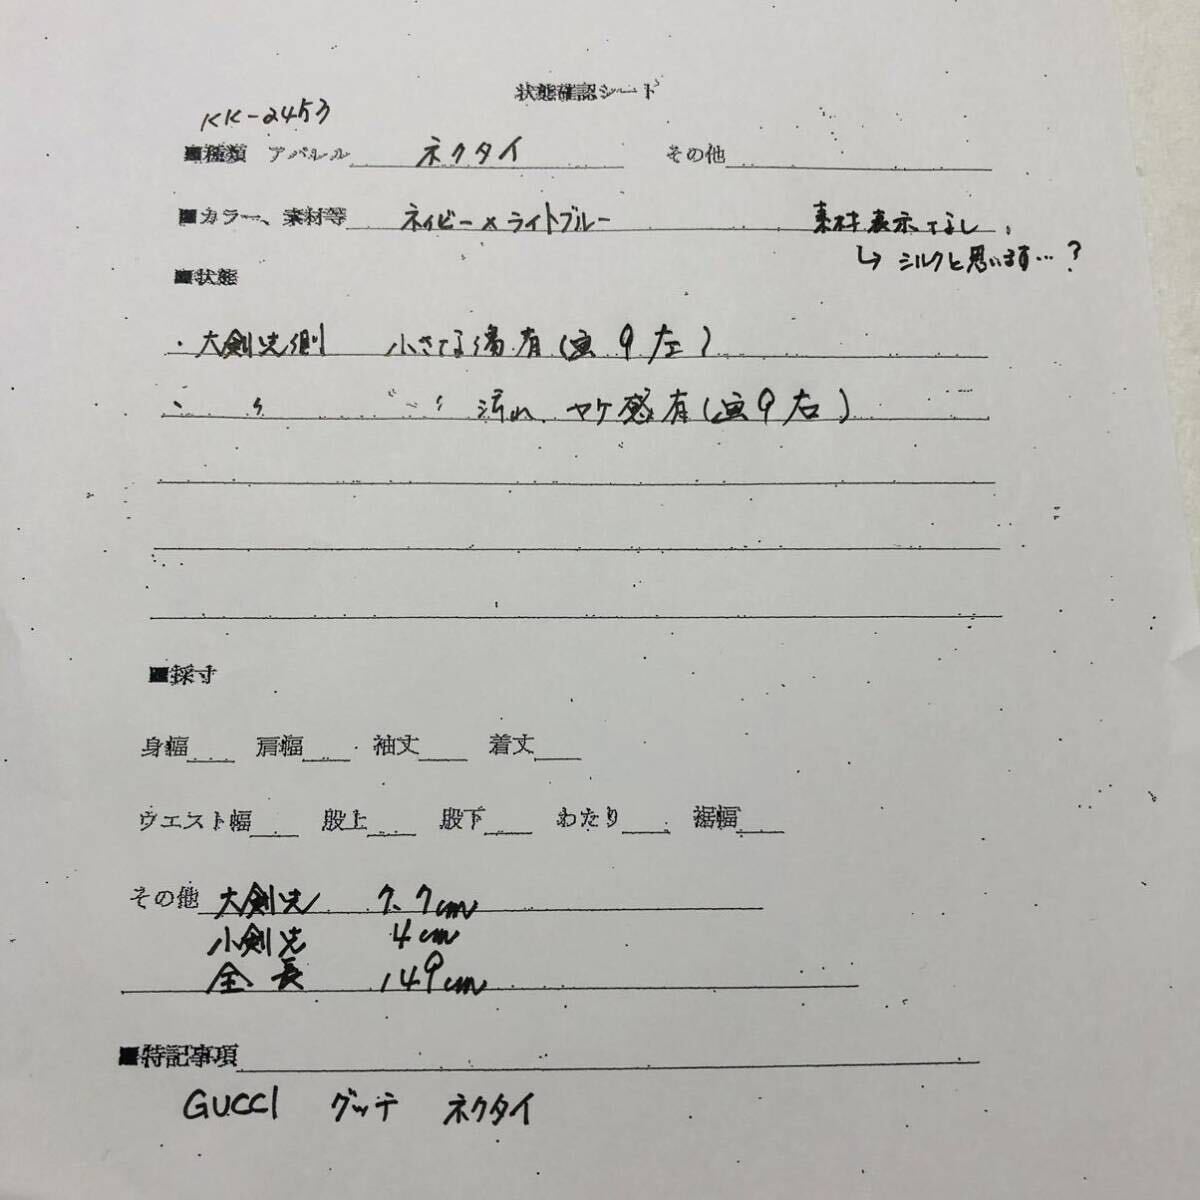 状態確認シート
KK-2453
■種類 アパレル ネクタイ その他
■カラー、素材等 ネイビー×ライトブルー 素材表示なし、
↳ シルクと思います…?
■状態
・大剣先側 小さな傷有(画9左)
、 〃 〃 汚れ、ヤケ感有(画9右)
■採寸
身幅 肩幅 袖丈 着丈
ウエスト幅 股上 股下 わたり 裾幅
その他 大剣先 7.7cm
小剣先 4cm
全長 149cm
■特記事項
GUCCI グッチ ネクタイ